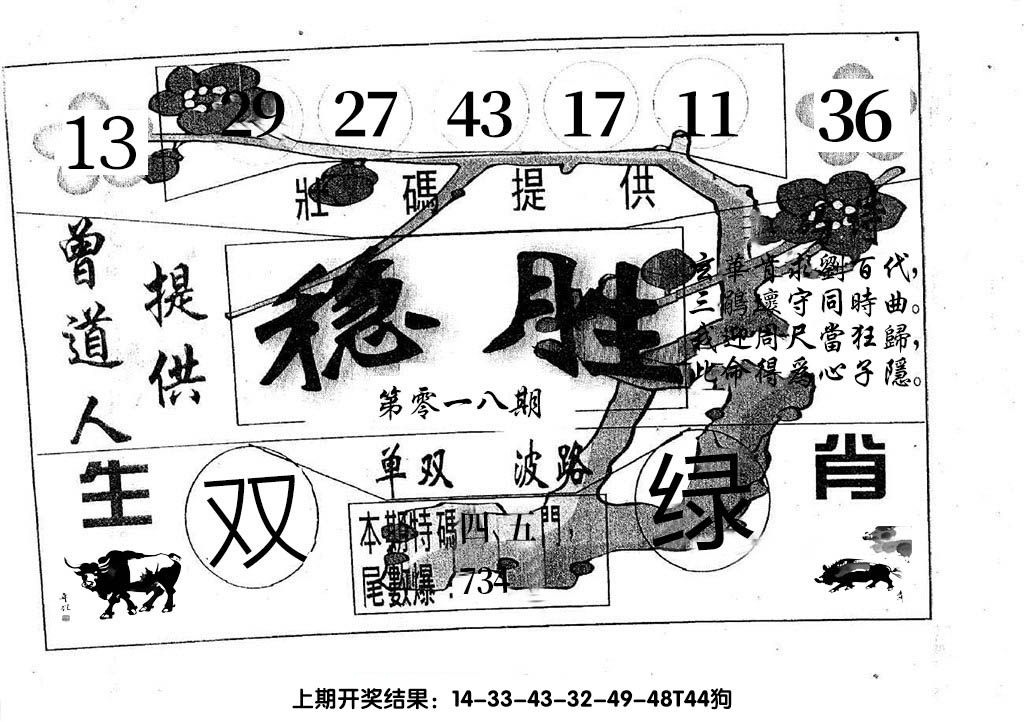 13 29 27 43 17 11 36
壯碼提供
曾道人
提供
稳胜
第零一八期
玄華肯求劉百代，
三鶴壞守同時曲。
我迎周尺當狂歸，
此命得爲心子隱。
单双 波路
生肖
双
绿
本期特碼四、五門，
尾數爆：734
上期开奖结果：14-33-43-32-49-48T44狗